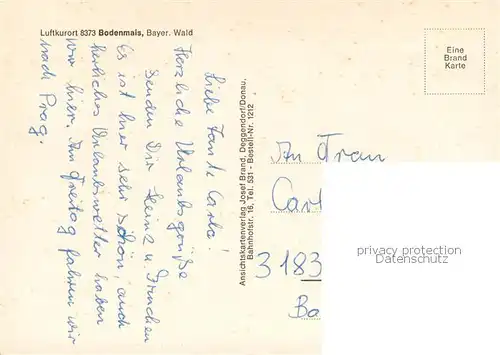 Luftkurort 8373 Bodenmais, Bayer. Wald
Eine
Brand
Karte
Liebe Tante Carla!
Herzliche Urlaubsgrüße
senden Dir Heinz u. Trudchen
Es ist hier sehr schön, auch
herrliches Urlaubswetter haben
wir hier. Am Freitag fahren wir
nach Prag.
Ansichtskartenverlag Josef Brand, Deggendorf/Donau,
Bahnhofstr. 16, Tel. 531 - Bestell-Nr. 1212
An Frau
Carl
3183
Ba
privacy protection
Datenschutz